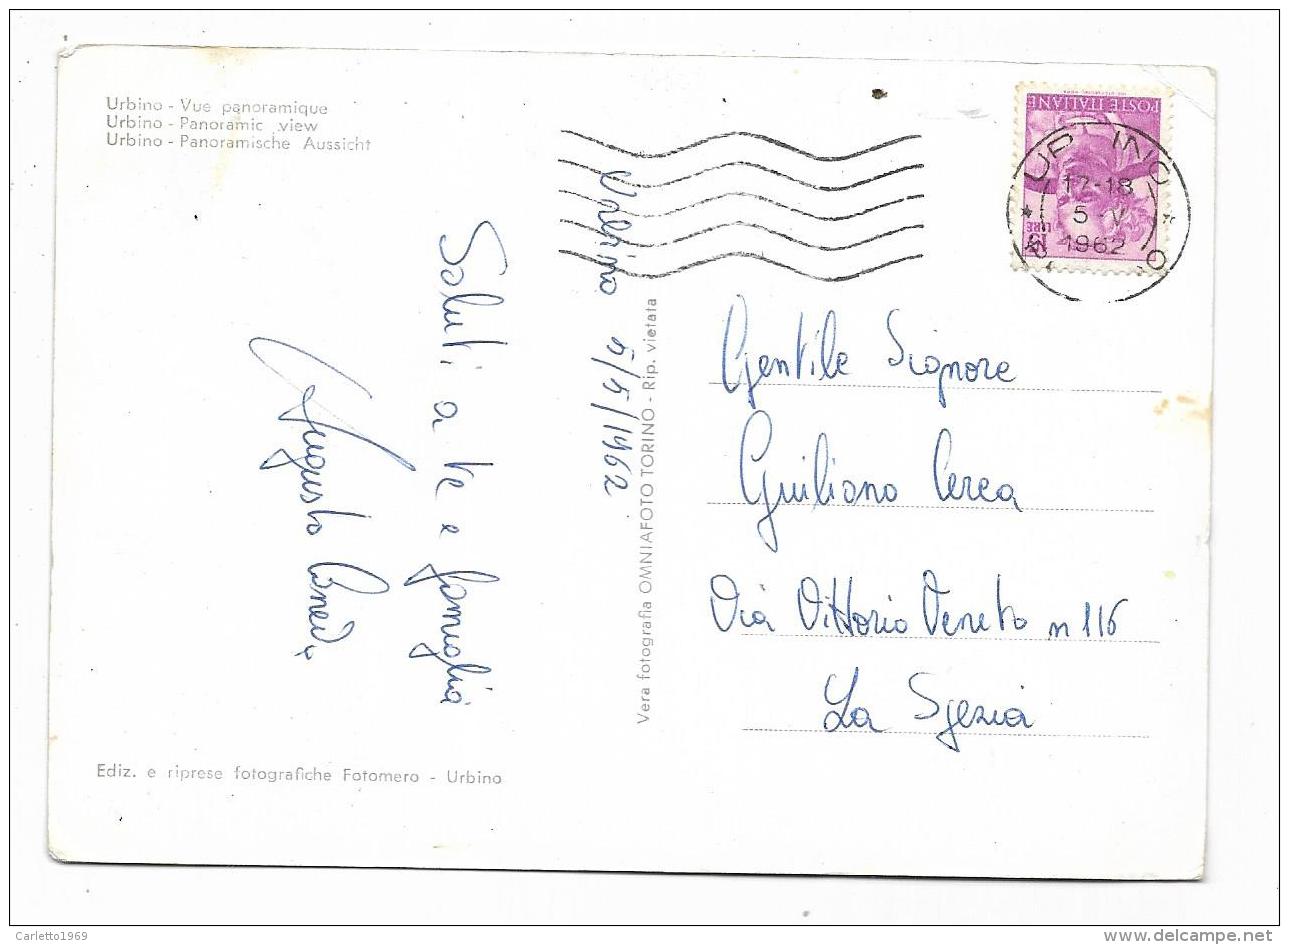 Urbino - Vue panoramique
Urbino - Panoramic view
Urbino - Panoramische Aussicht
POSTE ITALIANE
LIRE 15
17-18
5 - V
1962
Urbino 5/5/1962
Saluti a te e famiglia
Augusto
Vera fotografia OMNIAFOTO TORINO - Rip. vietata
Gentile Signore
Guiliano Cerea
Via Vittorio Veneto n 116
La Spezia
Ediz. e riprese fotografiche Fotomero - Urbino
Carletto1969
delcampe.net